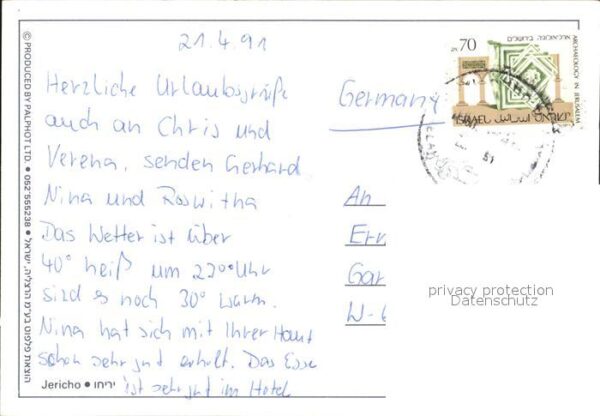 21.4.91
Herzliche Urlaubsgrüße
auch an Chris und
Verena, senden Gerhard
Nina und Roswitha
Das Wetter ist über
40° heiß um 22⁰⁰ Uhr
sind es noch 30° warm.
Nina hat sich mit Ihrer Haut
schon sehr gut erholt. Das Esse
ist sehr gut im Hotel
Jericho • יריחו
© PRODUCED BY PALPHOT LTD. • 052 555238 • הוצאת פלפוט בע״מ הרצליה, ישראל
Germany
An
Err
Gar
W-6
privacy protection
Datenschutz
70
ארכיאולוגיה בירושלים
ARCHAEOLOGY IN JERUSALEM
ISRAEL اسرائيل ישראל